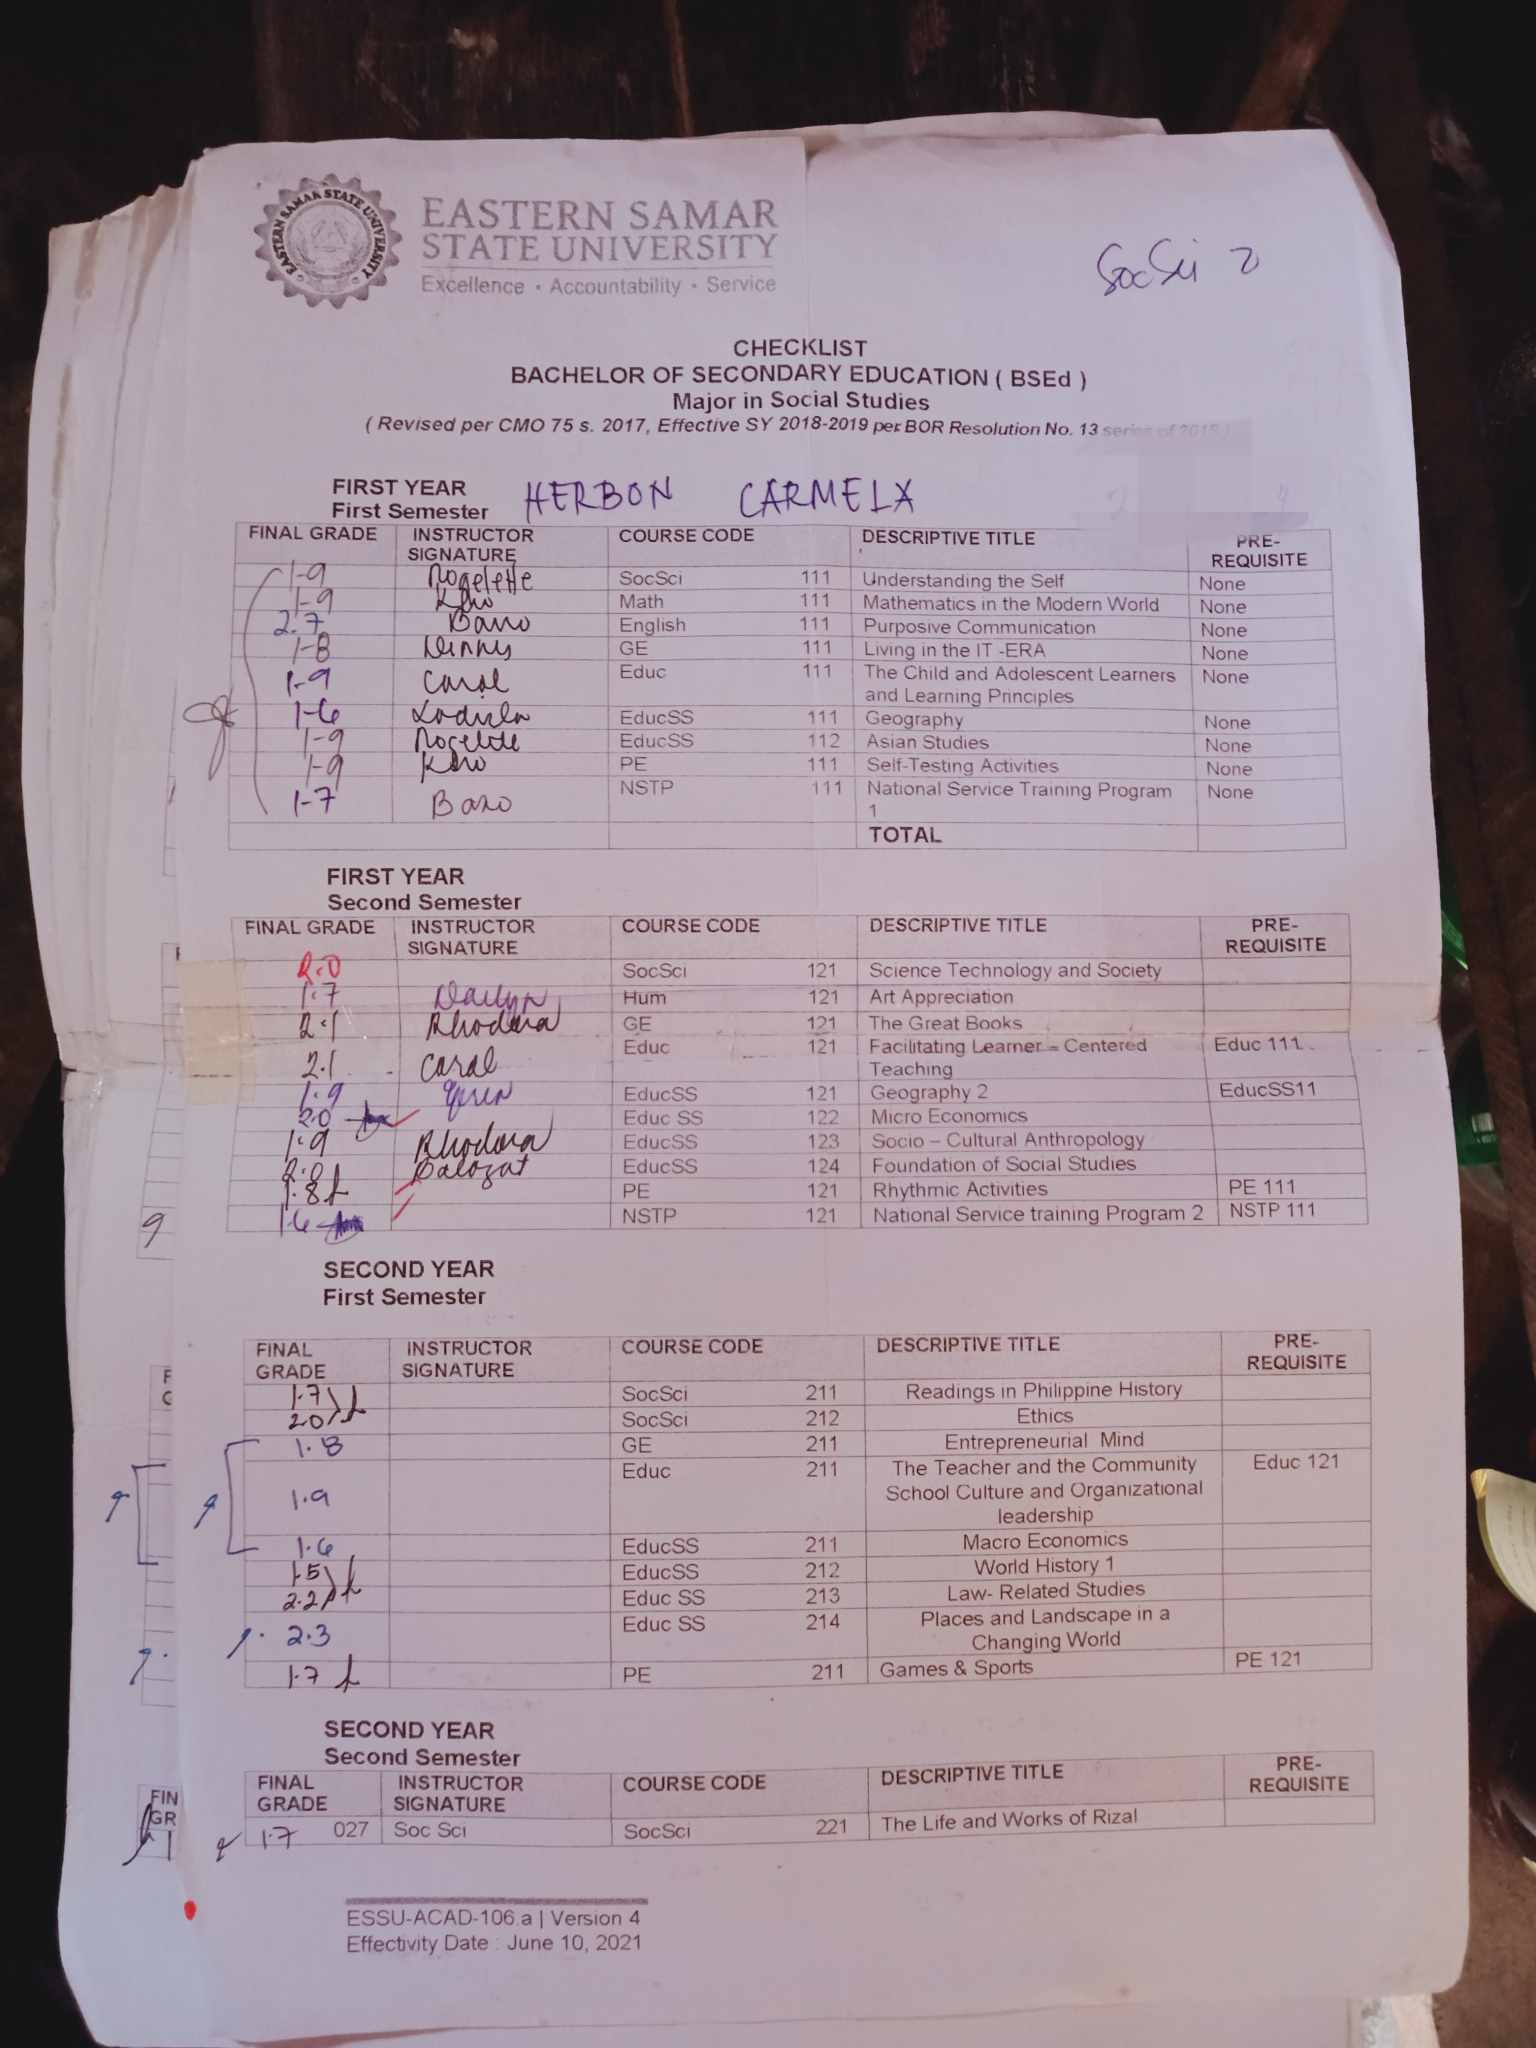 EASTERN SAMAR STATE UNIVERSITY
EASTERN SAMAR
STATE UNIVERSITY
Excellence • Accountability • Service
SocSci 2
CHECKLIST
BACHELOR OF SECONDARY EDUCATION ( BSEd )
Major in Social Studies
( Revised per CMO 75 s. 2017, Effective SY 2018-2019 per BOR Resolution No. 13 series of 2015 )
FIRST YEAR
First Semester HERBON CARMELA
FINAL GRADE INSTRUCTOR SIGNATURE COURSE CODE DESCRIPTIVE TITLE PRE-REQUISITE
1-9 Rogelette SocSci 111 Understanding the Self None
1-9 Math 111 Mathematics in the Modern World None
2.7 English 111 Purposive Communication None
1-8 GE 111 Living in the IT -ERA None
1-9 Caral Educ 111 The Child and Adolescent Learners and Learning Principles None
1-6 EducSS 111 Geography None
1-9 Rogelette EducSS 112 Asian Studies None
1-9 PE 111 Self-Testing Activities None
1-7 NSTP 111 National Service Training Program 1 None
TOTAL
FIRST YEAR
Second Semester
FINAL GRADE INSTRUCTOR SIGNATURE COURSE CODE DESCRIPTIVE TITLE PRE-REQUISITE
2.0 SocSci 121 Science Technology and Society
1.7 Hum 121 Art Appreciation
2.1 Rhodora GE 121 The Great Books
2.1 Caral Educ 121 Facilitating Learner – Centered Teaching Educ 111
1.9 EducSS 121 Geography 2 EducSS11
2.0 Educ SS 122 Micro Economics
1.9 Rhodora EducSS 123 Socio – Cultural Anthropology
Balazat EducSS 124 Foundation of Social Studies
1.8 PE 121 Rhythmic Activities PE 111
1.6 NSTP 121 National Service training Program 2 NSTP 111
SECOND YEAR
First Semester
FINAL GRADE INSTRUCTOR SIGNATURE COURSE CODE DESCRIPTIVE TITLE PRE-REQUISITE
1.7 SocSci 211 Readings in Philippine History
2.0 SocSci 212 Ethics
1.8 GE 211 Entrepreneurial Mind
1.9 Educ 211 The Teacher and the Community School Culture and Organizational leadership Educ 121
1.6 EducSS 211 Macro Economics
1.5 EducSS 212 World History 1
2.2 Educ SS 213 Law- Related Studies
2.3 Educ SS 214 Places and Landscape in a Changing World
1.7 PE 211 Games & Sports PE 121
SECOND YEAR
Second Semester
FINAL GRADE INSTRUCTOR SIGNATURE COURSE CODE DESCRIPTIVE TITLE PRE-REQUISITE
1.7 027 Soc Sci SocSci 221 The Life and Works of Rizal
ESSU-ACAD-106.a | Version 4
Effectivity Date : June 10, 2021